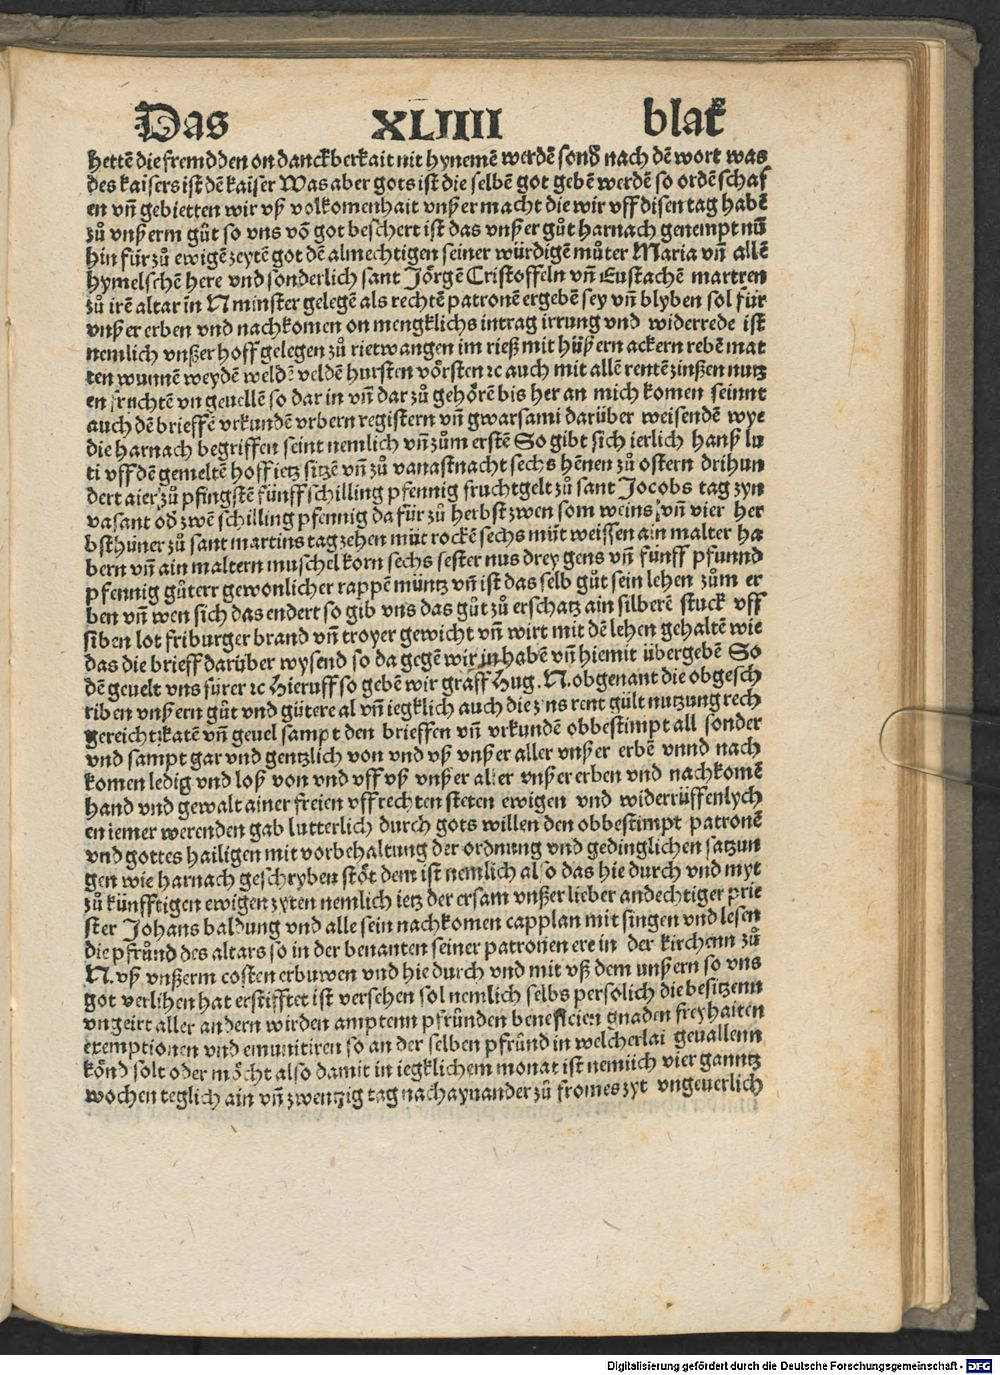 Das XLIIII blat
hettē die fremdden on danckberkait nit hynemē werdē sonđ nach dē wort was
des kaisers ist dē kaiser Was aber gots ist die selbē got gebē werdē so ordē schaf
en vñ gebietten wir vß volkomenhait vnßer macht die wir vff disen tag habē
zů vnßerm gůt so vns vō got beschert ist das vnßer gůt harnach genempt nū
hin für zů ewigē zeytē got dē almechtigen seiner würdigē můter Maria vñ allē
hymelschē here vnd sonderlich sant Jörgē Cristoffeln vñ Eustachē martren
zů irē altar in N minster gelegē als rechtē patronē ergebē sey vñ blyben sol für
vnßer erben vnd nachkomen on mengklichs intrag irrung vnd widerrede ist
nemlich vnßer hoff gelegen zů rietwangen im rieß mit hüßern ackern rebē mat
ten wunnē weydē weldē veldē hursten vörsten ꝛc auch mit allē rentē zinßen nutz
en fruchtē vn geuellē so dar in vñ dar zů gehörē bis her an mich komen seinnt
auch dē brieffē vrkundē vrbern registern vñ gwarsami darüber weisendē wye
die harnach begriffen seint nemlich vñ zům erstē So gibt sich ierlich hanß lu
ti vff dē gemeltē hoff ietz sitzē vñ zů vanastnacht sechs hēnen zů ostern drihun
dert aier zů pfingstē fünff schilling pfennig fruchtgelt zů sant Jocobs tag zyn
vasant od zwē schilling pfennig da für zů herbst zwen som weins vñ vier her
bsthüner zů sant martins tag zehen müt rockē sechs müt weissen ain malter ha
bern vñ ain maltern muschel korn sechs sester nus drey gens vñ fünff pfunnd
pfennig gůterr gewonlicher rappē müntz vñ ist das selb gůt sein lehen zům er
ben vñ wen sich das endert so gib vns das gůt zů erschatz ain silberē stuck vff
siben lot friburger brand vñ troyer gewicht vñ wirt mit dē lehen gehaltē wie
das die brieff darüber wysend so da gegē wir in habē vñ hiemit übergebē So
dē geuelt vns fürer ꝛc Hieruff so gebē wir graff Hug. N. obgenant die obgesch
riben vnßern gůt vnd gütere al vñ iegklich auch die zins rent gült nutzung rech
gereichtikatē vñ geuel sampt den brieffen vñ vrkundē obbestimpt all sonder
vnd sampt gar vnd gentzlich von vnd vß vnßer aller vnßer erbē vnnd nach
komen ledig vnd loß von vnd vff vß vnßer aller vnßer erben vnd nachkomē
hand vnd gewalt ainer freien vffrechten steten ewigen vnd widerrüffenlych
en iemer werenden gab lutterlich durch gots willen den obbestimpt patronē
vnd gottes hailigen mit vorbehaltung der ordnung vnd gedinglichen satzun
gen wie harnach geschryben stöt dem ist nemlich also das hie durch vnd myt
zů künfftigen ewigen zyten nemlich ietz der ersam vnßer lieber andechtiger prie
ster Johans baldung vnd alle sein nachkomen capplan mit singen vnd lesen
die pfrůnd des altars so in der benanten seiner patronen ere in der kirchenn zů
N. vß vnßerm costen erbuwen vnd hie durch vnd mit vß dem vnßern so vns
got verlihen hat erstifftet ist versehen sol nemlich selbs persolich die besitzenn
vngeirt aller andern wirden amptenn pfrůnden beneficien gnaden freyhaiten
exemptionen vnd emunitiren so an der selben pfrůnd in welcherlai geuallenn
könd solt oder möcht also damit in iegklichem monat ist nemlich vier ganntz
wochen teglich ain vñ zwentzig tag nach aynander zů fromes zyt vngeuerlich
Digitalisierung gefördert durch die Deutsche Forschungsgemeinschaft - DFG